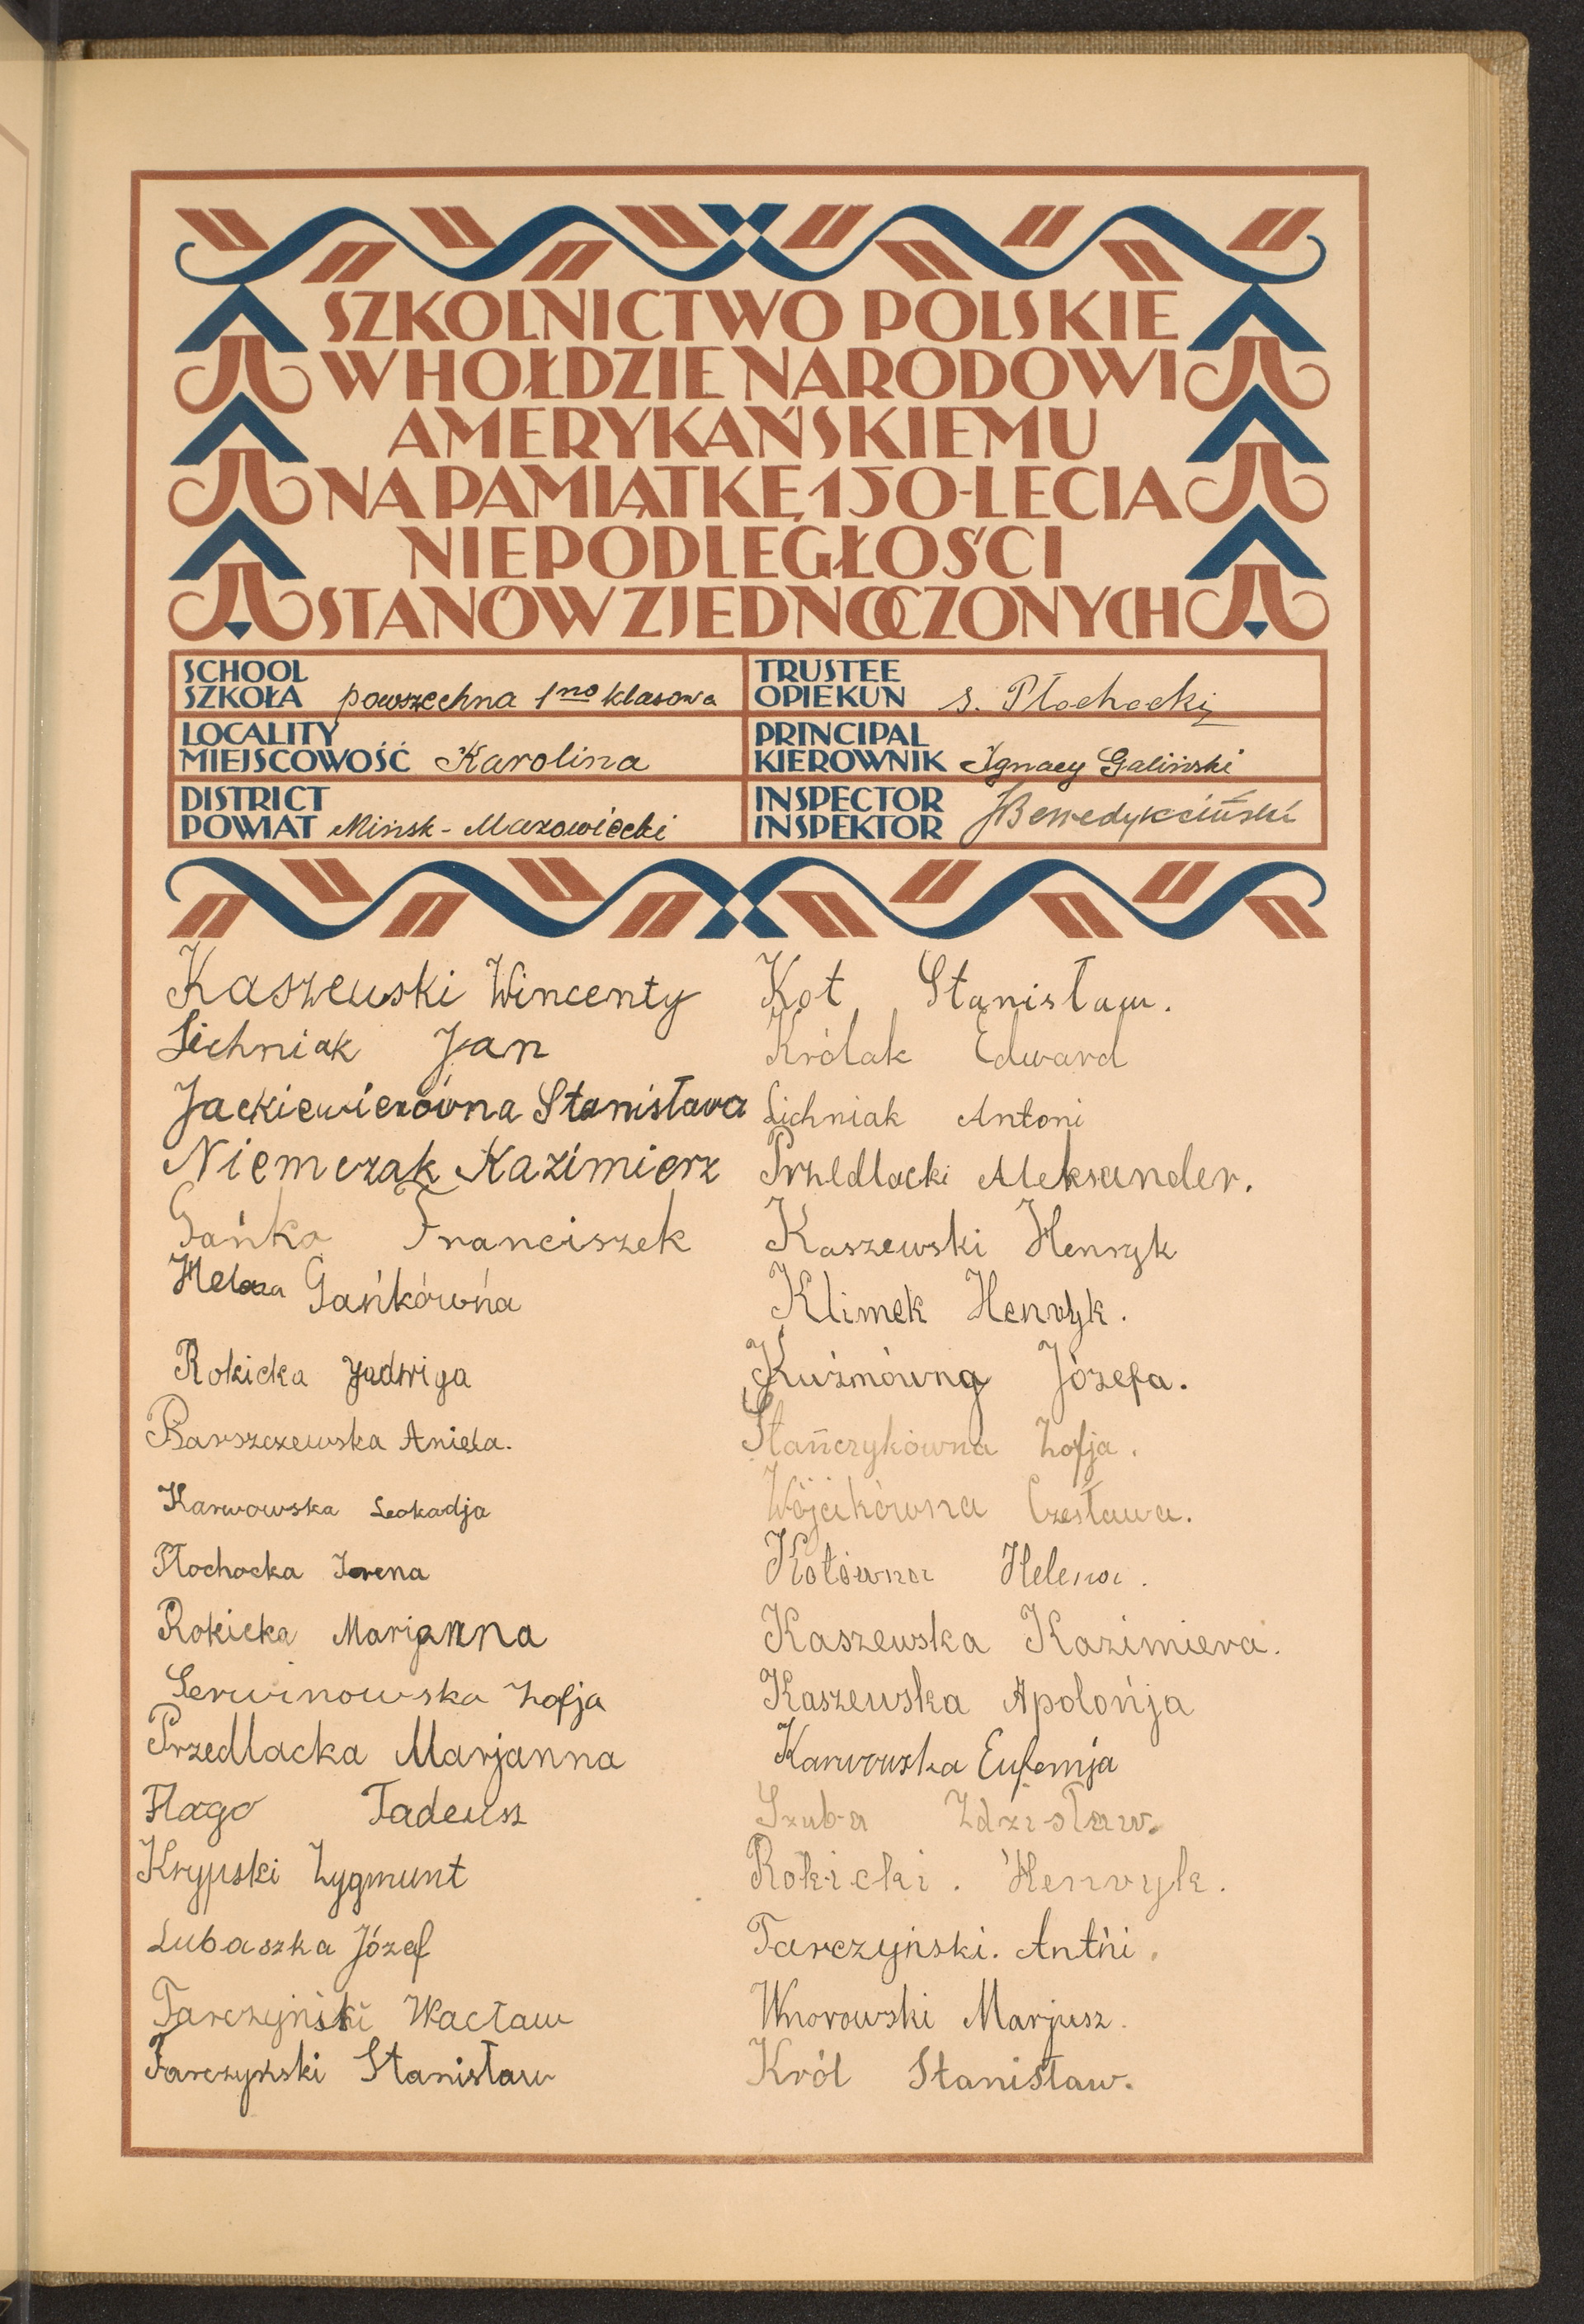 SZKOLNICTWO POLSKIE
W HOŁDZIE NARODOWI
AMERYKAŃSKIEMU
NA PAMIĄTKĘ 150-LECIA
NIEPODLEGŁOŚCI
STANÓW ZJEDNOCZONYCH
SCHOOL
SZKOŁA powszechna 1no klasowa
TRUSTEE
OPIEKUN S. Płochocki
LOCALITY
MIEJSCOWOŚĆ Karolina
PRINCIPAL
KIEROWNIK Ignacy Galiński
DISTRICT
POWIAT Mińsk-Mazowiecki
INSPECTOR
INSPEKTOR JBenedykciński
Kaszewski Wincenty
Lichniak Jan
Jackiewiczówna Stanisława
Niemczak Kazimierz
Gańko Franciszek
Gańkówńa
Rokicka Jadwiga
Barszczewska Aniela.
Karwowska Leokadja
Płochocka Irena
Rokicka Marjanna
Serwinowska Zofja
Przedlacka Marjanna
Flago Tadeusz
Krypski Zygmunt
Lubaszka Józef
Tarczyński Wacław
Tarczyński Stanisław
Kot Stanisław.
Królak Edward
Lichniak Antoni
Przedlacki Aleksander.
Kaszewski Henryk
Klimek Henryk.
Kuźmówna Józefa.
Stańczykówna Zofja.
Wójcikówna Czesława.
Kotówna Helena.
Kaszewska Kazimiera.
Kaszewska Apolońja
Karwowska Eufemja
Szuba Zdzisław.
Rokicki. Henryk.
Tarczyński. Antńi.
Wnorowski Marjusz.
Król Stanisław.